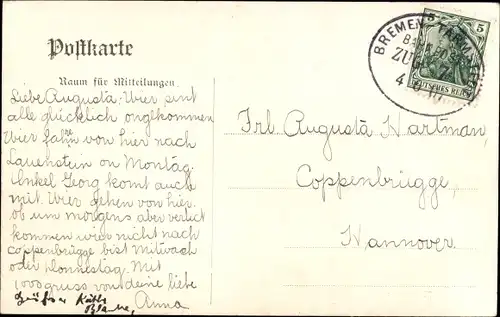 Postkarte
Raum für Mitteilungen
Liebe Augusta: Wier sint
alle glücklich angekommen
Wier fahrn von hier nach
Lauenstein on Montag.
Onkel Georg komt auch
mit. Wier gehen von hier
ob um morgens aber verlict
kommen wier nicht nach
Coppenbrügge bist Mitwach
oder Donnestag. Mit
1000 gruss von deine liebe
Anna
Käthe
BREMEN
BAHNPOST
ZUG
5
5
DEUTSCHES REICH
Frl Augusta Hartman
Coppenbrügge,
Hannover.